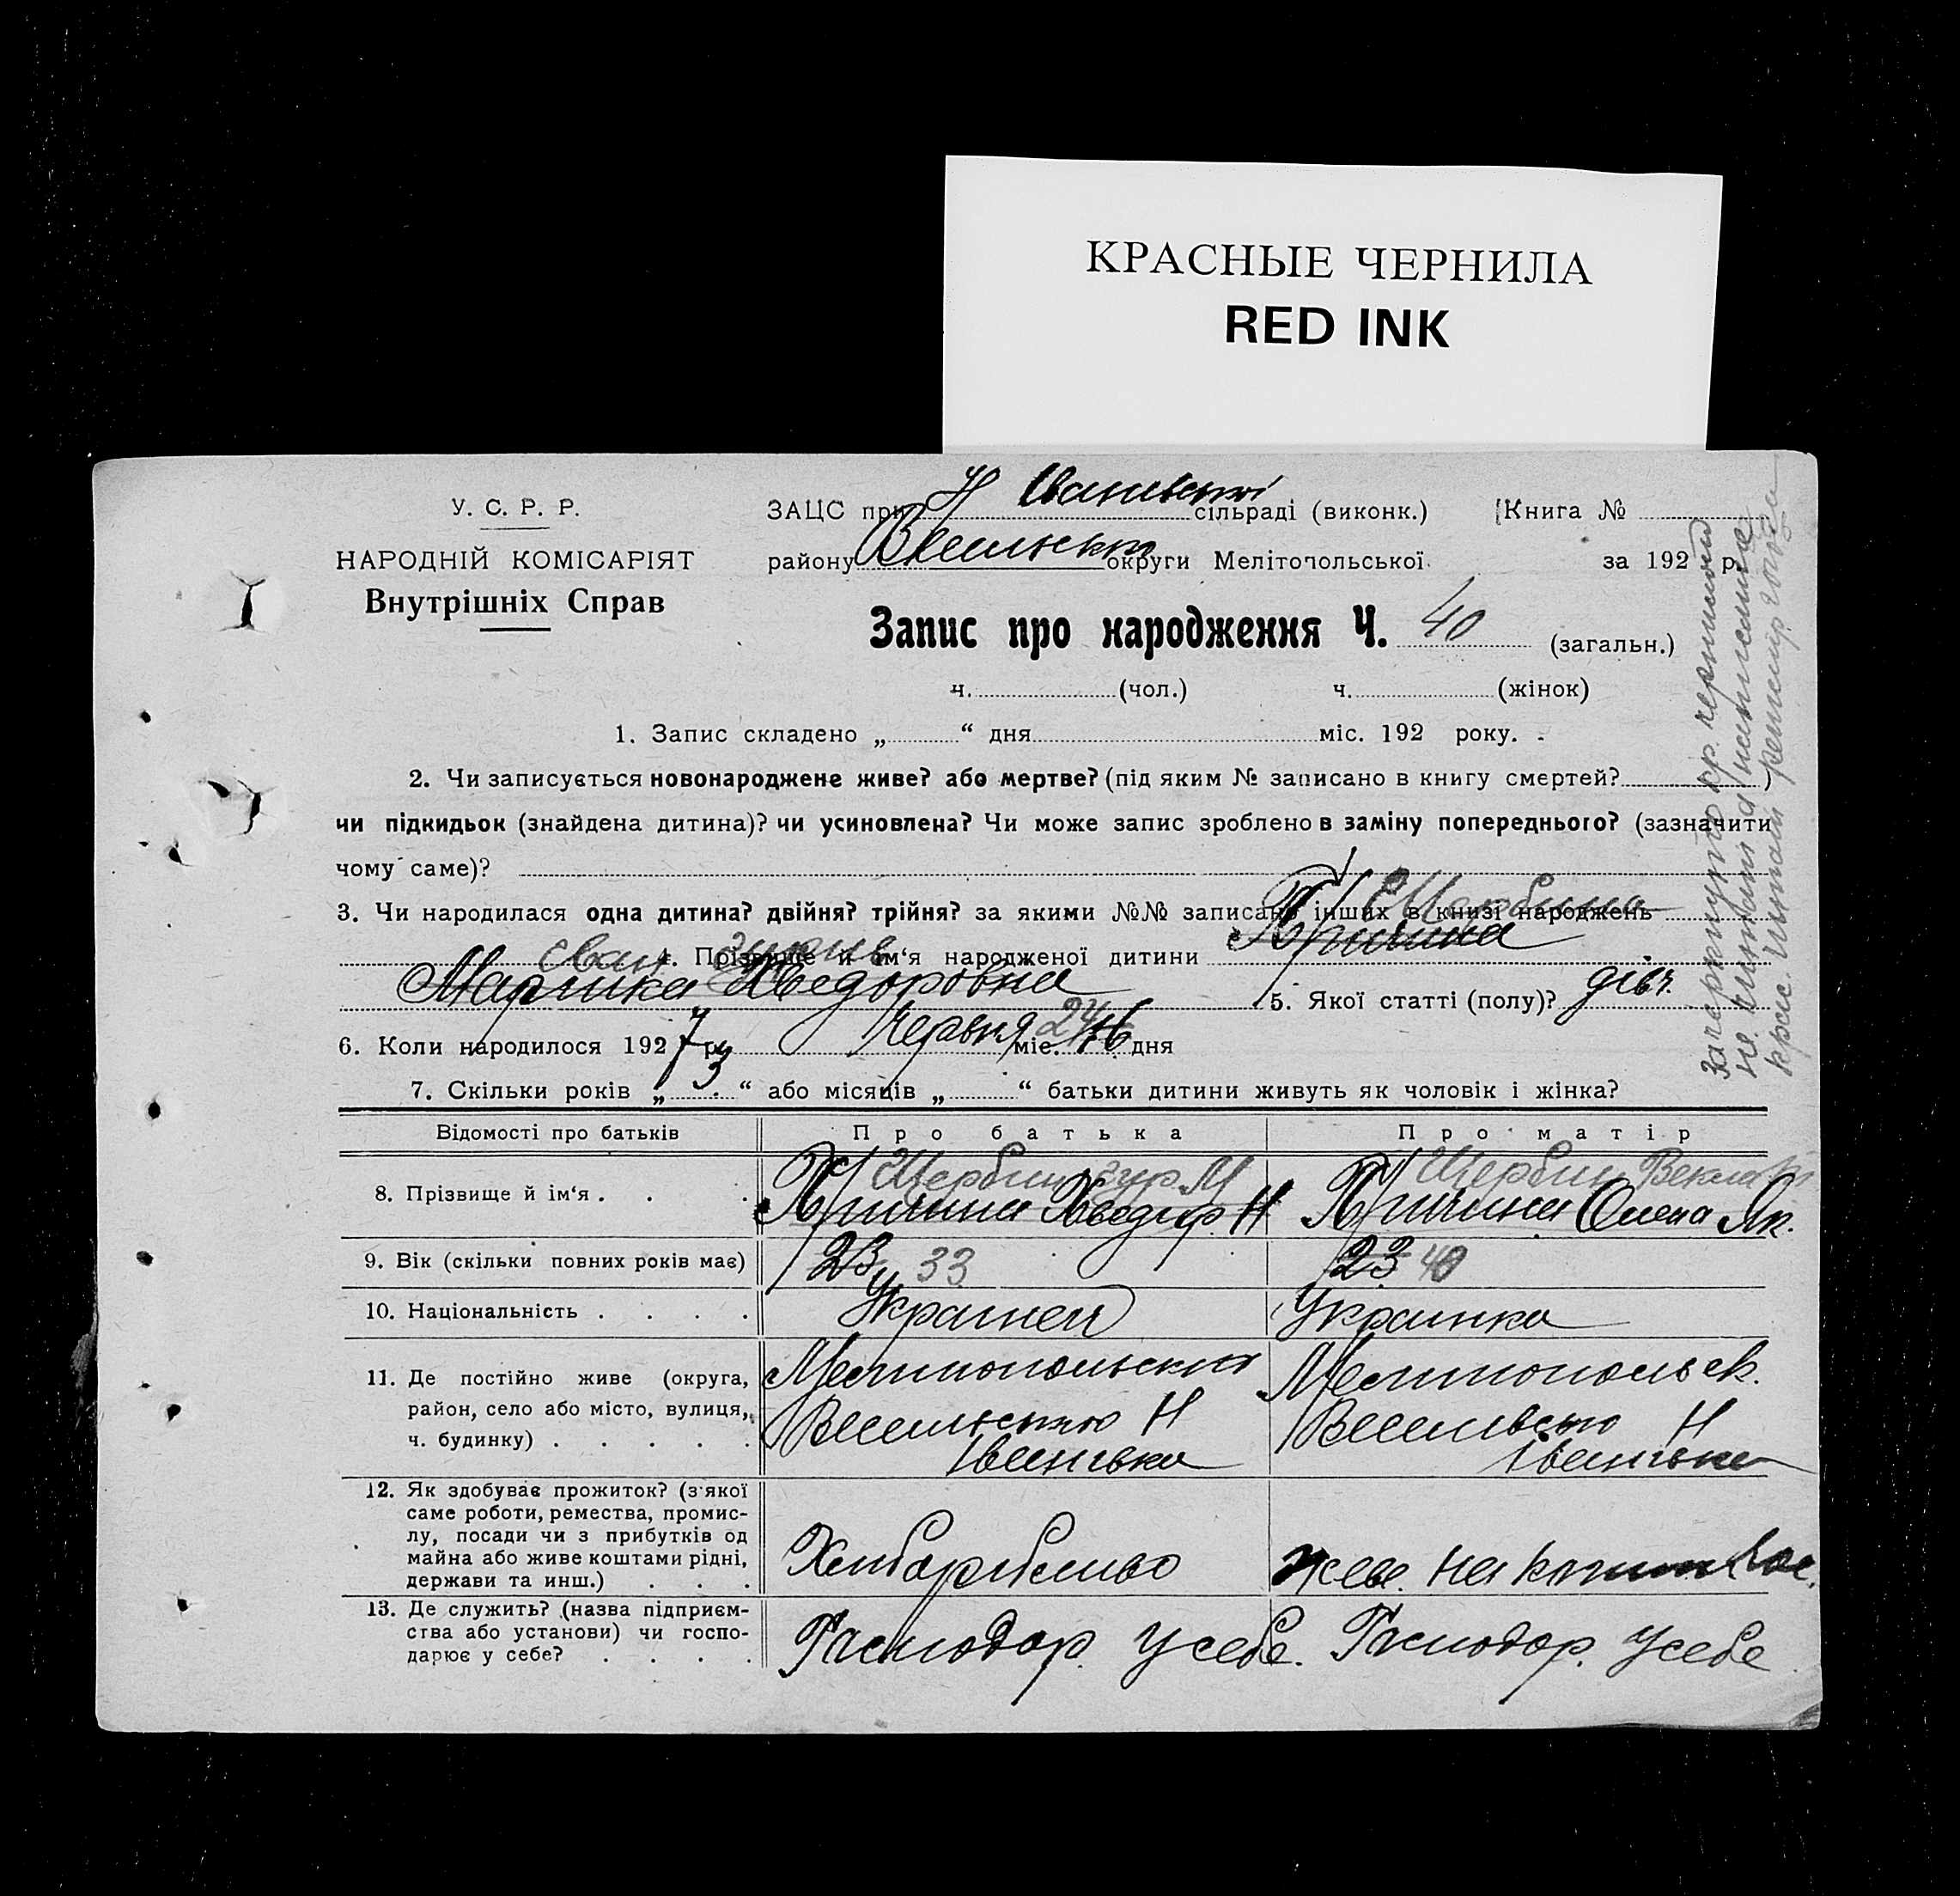 КРАСНЫЕ ЧЕРНИЛА
RED INK
У. С. Р. Р.
НАРОДНІЙ КОМІСАРІЯТ
Внутрішніх Справ
ЗАЦС при Н Іванівській сільраді (виконк.) Книга №
району Веселівського округи Мелітопольської за 192 р.
Запис про народження Ч. 40 (загальн.)
ч. (чол.) ч. (жінок)
1. Запис складено „ “ дня міс. 192 року.
2. Чи записується новонароджене живе? або мертве? (під яким № записано в книгу смертей? )
чи підкидьок (знайдена дитина)? чи усиновлена? Чи може запис зроблено в заміну попереднього? (зазначити
чому саме)?
3. Чи народилася одна дитина? двійня? трійня? за якими №№ записано інших в книзі народжень
Щербина
4. Прізвище й ім‘я народженої дитини
Хведоровна 5. Якої статті (полу)? дівч.
6. Коли народилося 1927 р. Червня міс. 24 16 дня
7. Скільки років „ 3 “ або місяців „ “ батьки дитини живуть як чоловік і жінка?
Відомості про батьків Про батька Про матір
8. Прізвище й ім‘я . . . Хведір Н Олена Як.
9. Вік (скільки повних років має) 23 33 23 40
10. Національність . . . . Украінец Украинка
11. Де постійно живе (округа, район, село або місто, вулиця, ч. будинку) . . . . .
Мелитопольский Мелитопольск.
Веселівського Н Веселівсько Н
Іванівка Іванівка
12. Як здобуває прожиток? (з якої саме роботи, ремества, промислу, посади чи з прибутків од майна або живе коштами рідні, держави та инш.) . . .
Хліборобство живе на кошти
13. Де служить? (назва підприємства або установи) чи господарює у себе? . . . .
Господар. у себе. Господар. у себе
зачеркнуто кр. чернилом
не читать а написанное